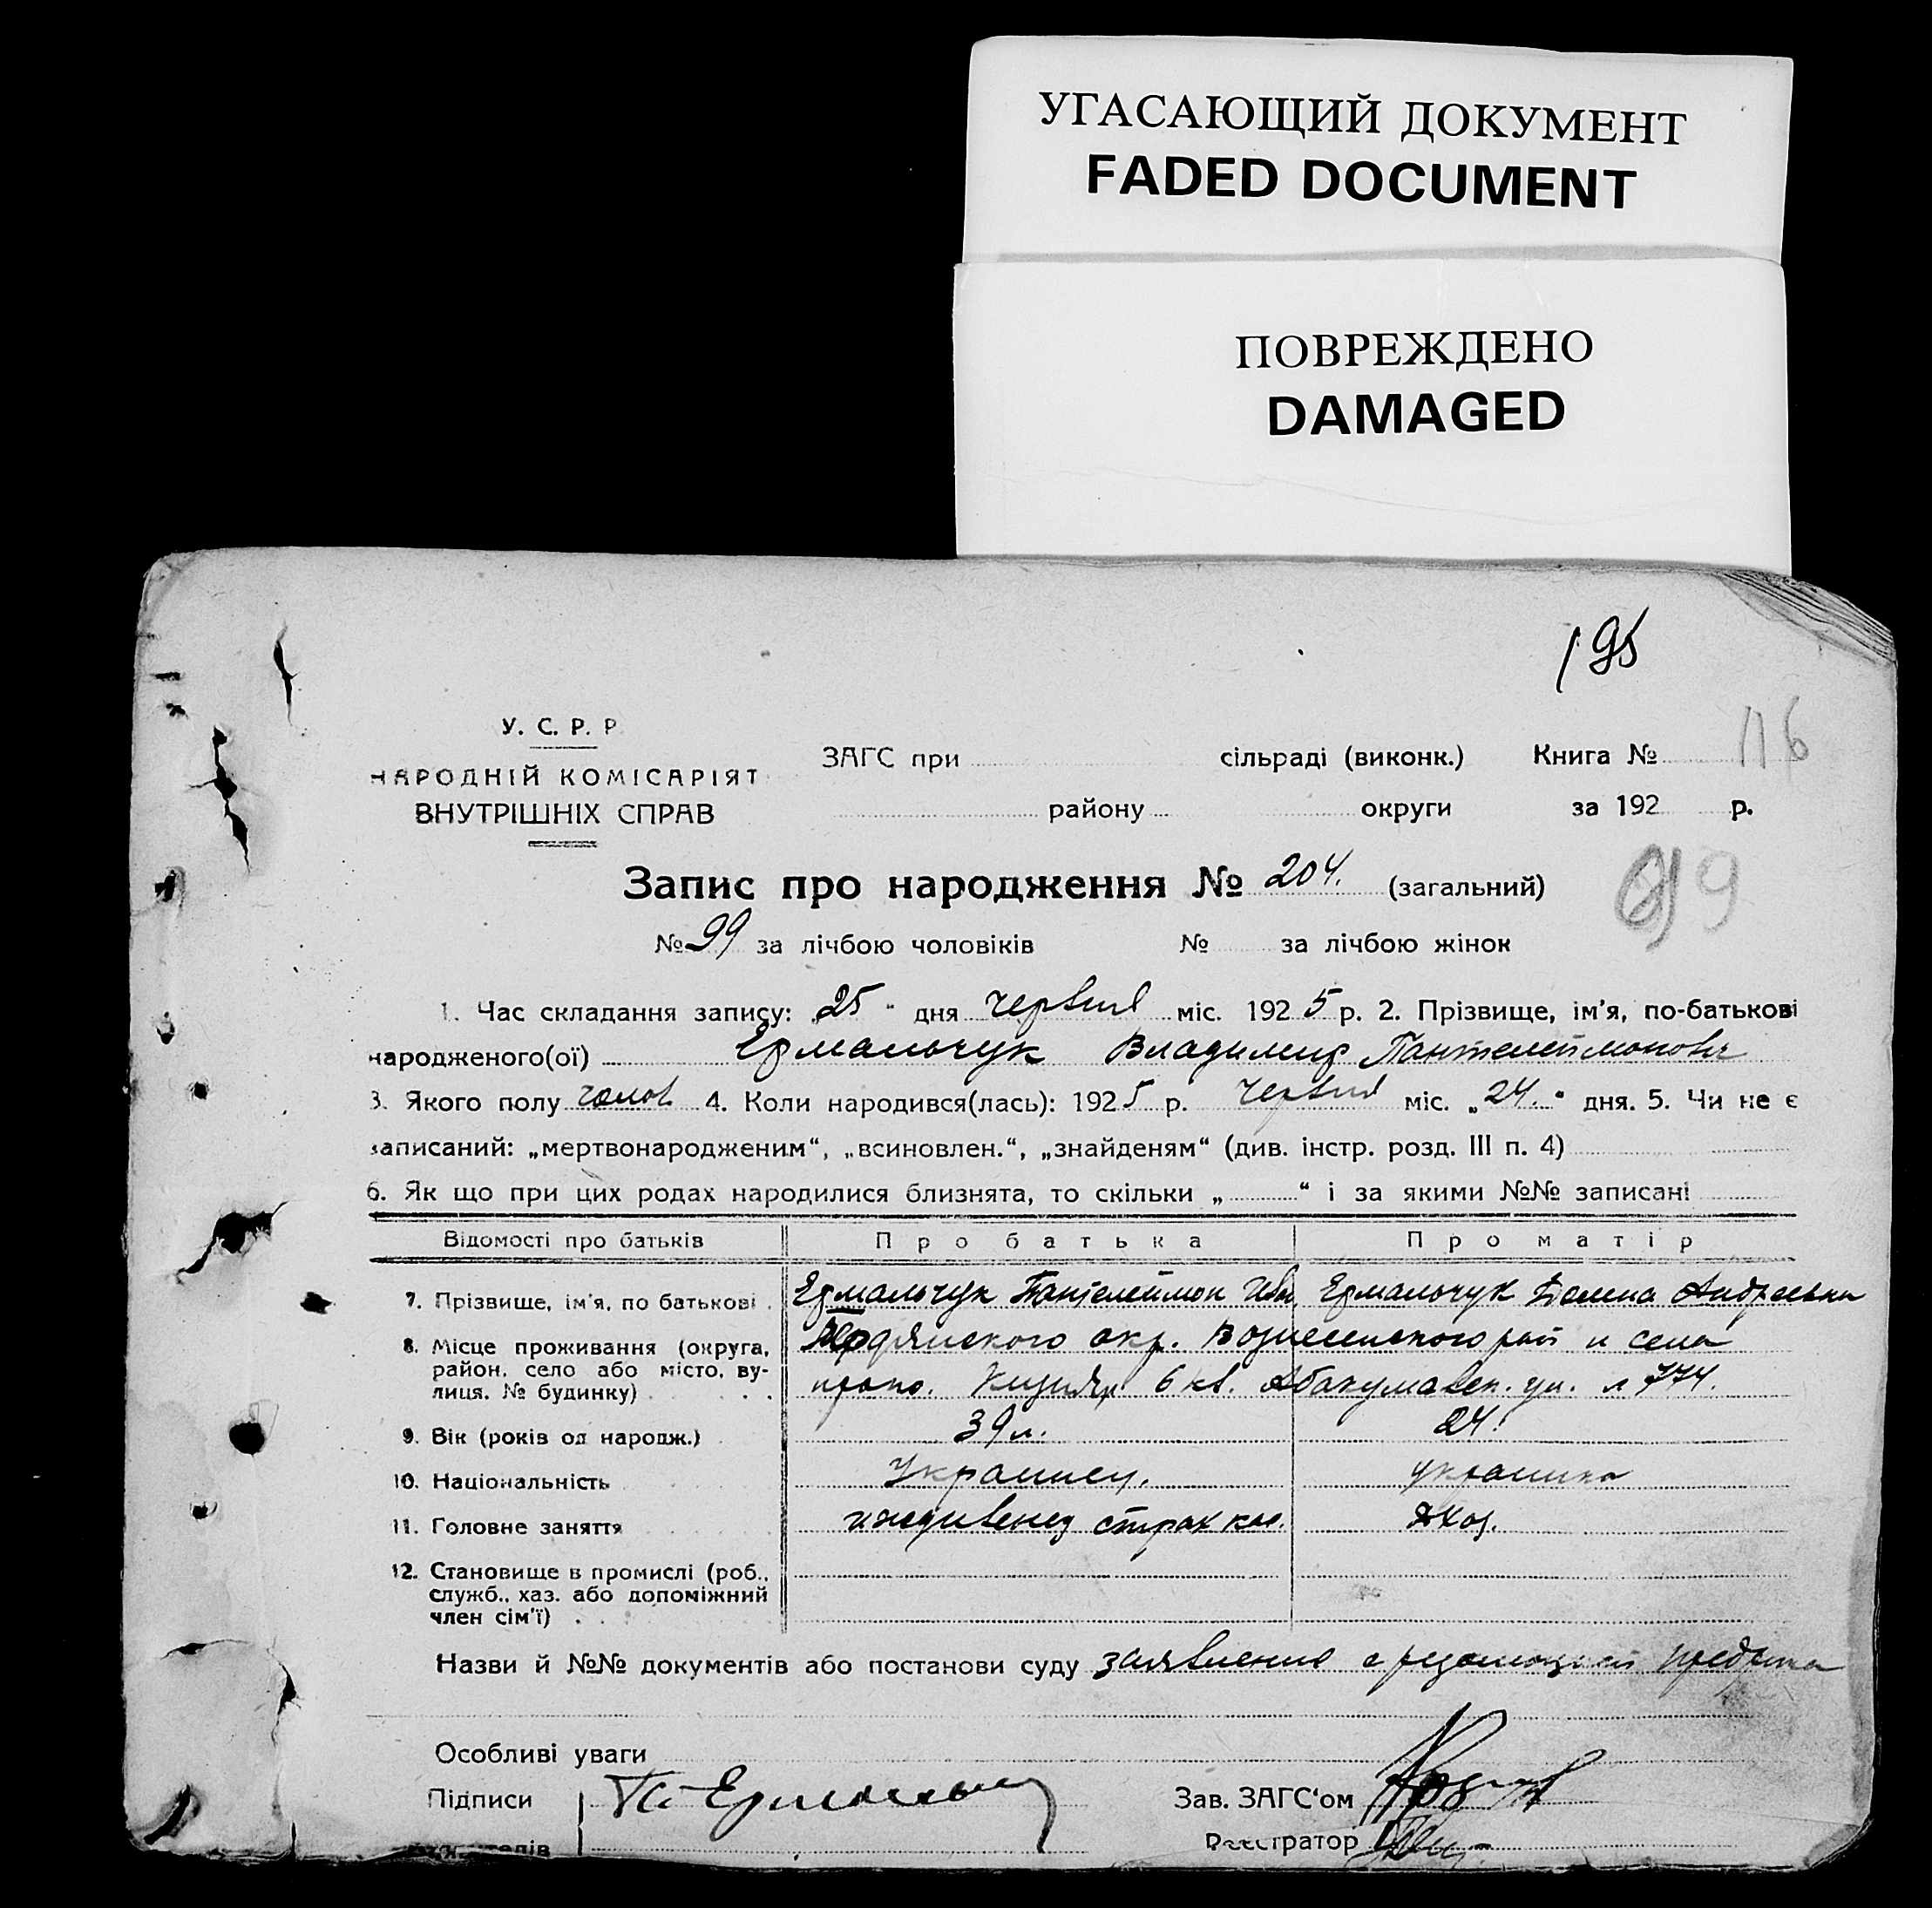 УГАСАЮЩИЙ ДОКУМЕНТ
FADED DOCUMENT
ПОВРЕЖДЕНО
DAMAGED
195
116
У. С. Р. Р.
НАРОДНІЙ КОМІСАРІЯТ
ВНУТРІШНІХ СПРАВ
ЗАГС при сільраді (виконк.) Книга №
району округи за 192 р.
Запис про народження № 204. (загальний)
№ 99 за лічбою чоловіків № за лічбою жінок
1. Час складання запису: „25" дня червня міс. 1925 р. 2. Прізвище, ім'я, по-батькові
народженого(ої) Ермальчук Владимир Пантелеймонович
3. Якого полу чолов 4. Коли народився(лась): 1925 р. червня міс. „24." дня. 5. Чи не є
записаний: „мертвонародженим", „всиновлен.", „знайденям" (див. інстр. розд. III п. 4)
6. Як що при цих родах народилися близнята, то скільки „ " і за якими №№ записані
Відомості про батьків Про батька Про матір
7. Прізвище, ім'я, по батькові Ермальчук Пантелеймон Ив. Ермальчук Андреевна
8. Місце проживання (округа, окр. Вознесенского рай и села
район, село або місто, ву-
лиця, № будинку) Кизияр 6 кв. ул. 774.
9. Вік (років од народж.) 39 л. 24.
10. Національність Украинец. украинка
11. Головне заняття иждивенец страх кас. Дхоз.
12. Становище в промислі (роб.,
служб., хаз. або допоміжний
член сім'ї)
Назви й №№ документів або постанови суду заявление с резолюцией
Особливі уваги
Підписи Зав. ЗАГС'ом
Реєстратор